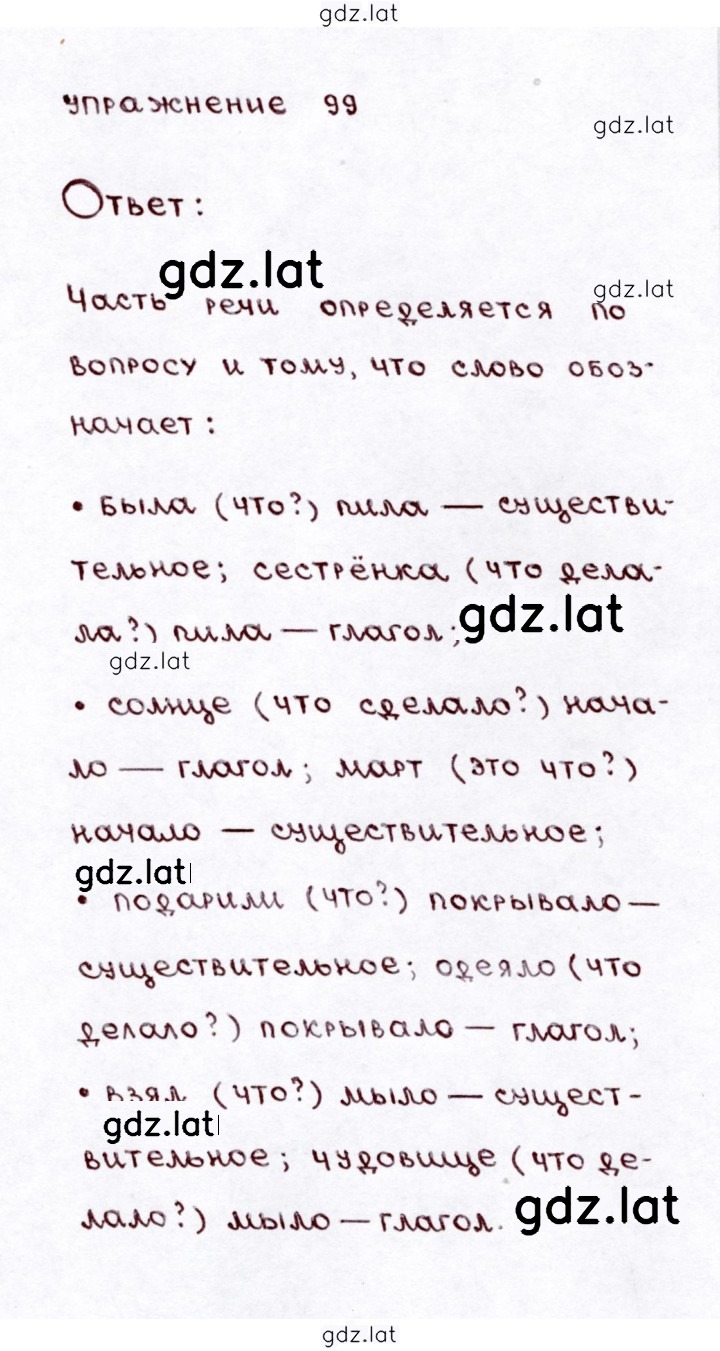 gdz.lat
упражнение 99
gdz.lat
Ответ:
gdz.lat
gdz.lat
Часть речи определяется по
вопросу и тому, что слово обоз-
начает:
• была (что?) пила — существи-
тельное; сестрёнка (что дела-
gdz.lat
ла?) пила — глагол;
gdz.lat
• солнце (что сделало?) нача-
ло — глагол; март (это что?)
начало — существительное;
gdz.lat
• подарили (что?) покрывало —
существительное; одеяло (что
делало?) покрывало — глагол;
• взял (что?) мыло — сущест-
gdz.lat
вительное; чудовище (что де-
лало?) мыло — глагол.
gdz.lat
gdz.lat